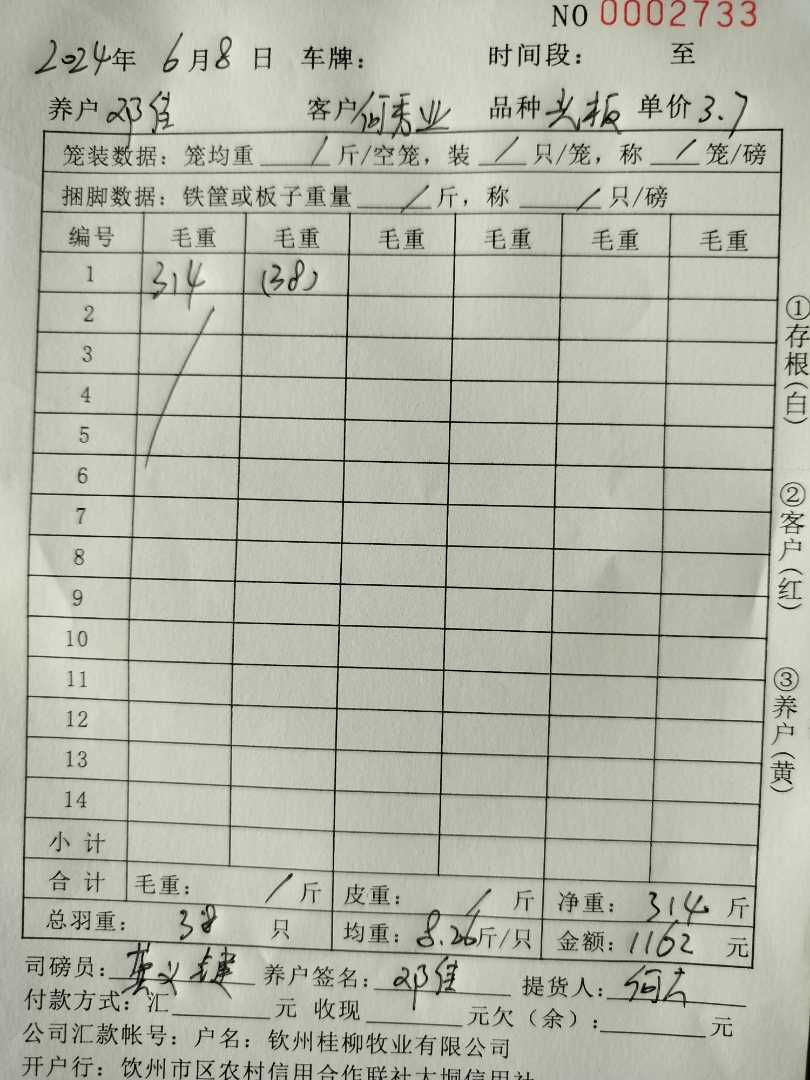 NO 0002733
2024年 6月8日 车牌： 时间段： 至
养户 邓佳 客户 何秀业 品种 光板 单价 3.7
笼装数据：笼均重 / 斤/空笼，装 / 只/笼，称 / 笼/磅
捆脚数据：铁筐或板子重量 / 斤，称 / 只/磅
编号 毛重 毛重 毛重 毛重 毛重 毛重
1 314 (38)
2
3
4
5
6
7
8
9
10
11
12
13
14
小计
合计 毛重： / 斤 皮重： / 斤 净重：314 斤
总羽重： 38 只 均重：8.26斤/只 金额：1162 元
司磅员： 养户签名：邓佳 提货人：何
付款方式：汇 元 收现 元欠（余）： 元
公司汇款帐号：户名：钦州桂柳牧业有限公司
开户行：饮州市区农村信用合作联社大垌信用社
①存根(白)
②客户(红)
③养户(黄)